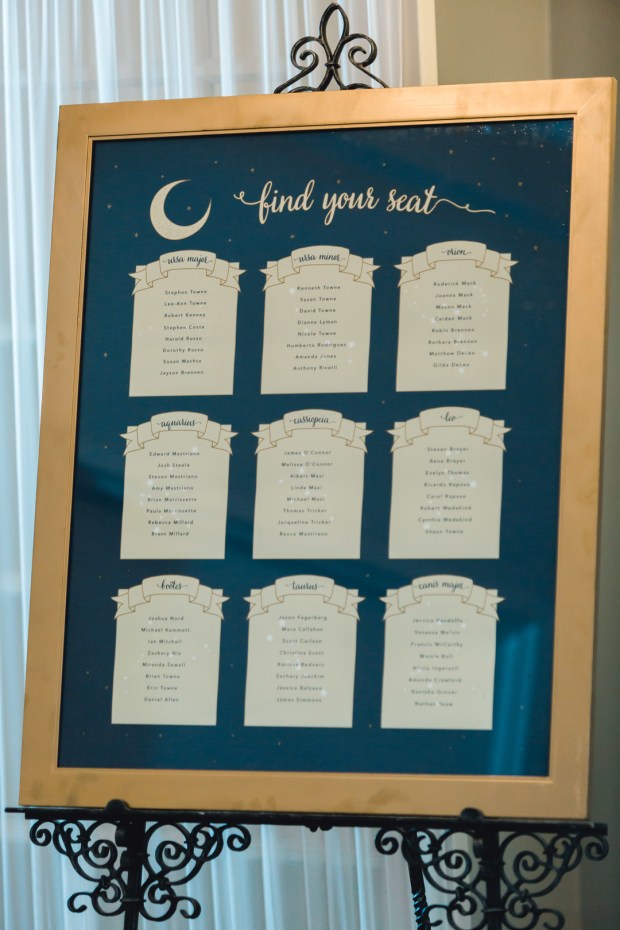 find your seat
ursa major
Stephen Towne
Lee-Ann Towne
Robert Kenney
Stephen Costa
Harold Russo
Dorothy Russo
Susan Machta
Jayson Brennen
ursa minor
Kenneth Towne
Susan Towne
David Towne
Dianne Lyman
Nicole Towne
Humberto Rodrigues
Amanda Jones
Anthony Rinelli
orion
Roderick Mack
Joanna Mack
Mason Mack
Caiden Mack
Robin Brennen
Barbara Brennen
Matthew
Gilda
aquarius
Edward Mastriano
Josh Steele
Steven Mastriano
Amy Mastriano
Brian Morrissette
Paula Morrissette
Rebecca Millard
Brent Millard
cassiopeia
James O'Connor
Melissa O'Connor
Albert Masi
Linda Masi
Michael Masi
Thomas Tricker
Jacqueline Tricker
Rocco Mastriano
leo
Steven Breyer
Rene Breyer
Evelyn Thomas
Ricardo Raposo
Carol Raposo
Robert Wadekind
Cynthia Wadekind
Shawn Towne
bootes
Joshua Nord
Michael Hammett
Ian Mitchell
Zachary Nix
Miranda Sewall
Brian Towne
Eric Towne
Daniel Allen
taurus
Jason Fagerberg
Marc Callahan
Scott Carlson
Christina Scott
Bednarz
Zachary Joachim
Jessica
James Simmons
canis major
Jessica
Vanessa
Francis McCarthy
Hall
Amanda Crawford
Nathan